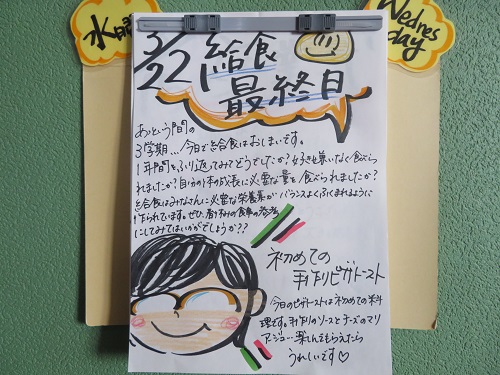 水曜
Wednes
day
3/22
給食
最終日
あっという間の
3学期...今日で給食はおしまいです。
1年間をふり返ってみてどうでしたか?好き嫌いなく食べら
れましたか?自分の体の成長に必要な量を食べられましたか?
給食はみなさんに必要な栄養素がバランスよくふくまれるように
作られています。ぜひ、春休みの食事の参考
にしてみてはいかがでしょうか??
初めての
手作りピザトースト
今日のピザトーストは初めての料
理です。手作りのソースとチーズのマリ
アージュ...楽しんでもらえたら
うれしいです♡